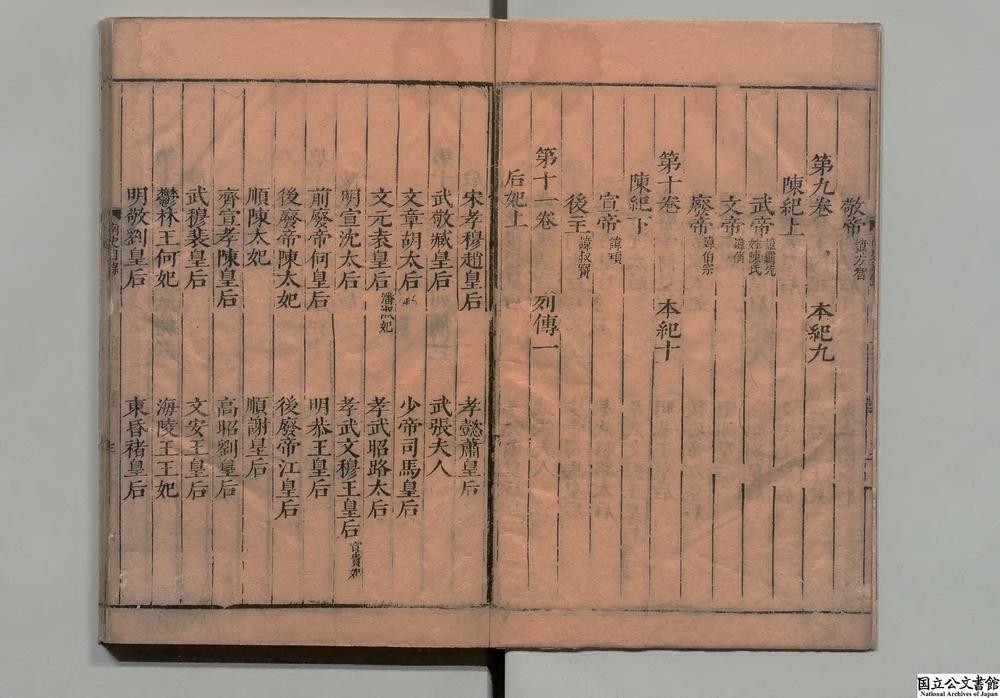 敬帝 諱方智
第九卷 本紀九
陳紀上
武帝 諱霸先 姓陳氏
文帝 諱蒨
廢帝 諱伯宗
第十卷 本紀十
陳紀下
宣帝 諱頊
後主 諱叔寳
第十一卷 列傳一
后妃上
宋孝穆趙皇后 孝懿蕭皇后
武敬臧皇后 武張夫人
文章胡太后 少帝司馬皇后
文元袁皇后 潘淑妃 孝武昭路太后
明宣沈太后 孝武文穆王皇后 宣貴妃
前廢帝何皇后 明恭王皇后
後廢帝陳太妃 後廢帝江皇后
順陳太妃 順謝皇后
齊宣孝陳皇后 高昭劉皇后
武穆裴皇后 文安王皇后
鬱林王何妃 海陵王王妃
明敬劉皇后 東昏褚皇后
国立公文書館
National Archives of Japan